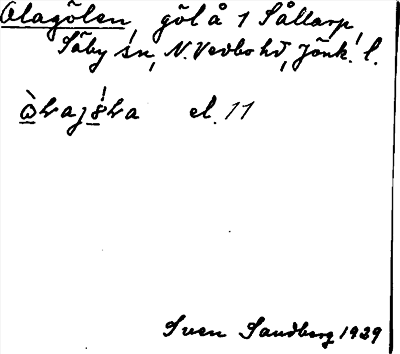 Alagölen, göl å 1 Sållarp,
Säby sn, N. Vedbo hd, Jönk. l.
el. 11
Sven Sandberg 1929